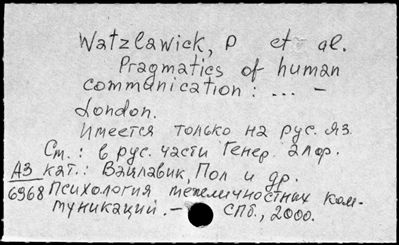 Watzlawick, P et al.
Pragmatics of human
communication: ... –
London.
Имеется только на рус. яз.
См.: в рус. части Генер. алф.
АЗ кат.: Вацлавик, Пол и др.
6968 Психология межличностных ком-
муникаций. – СПб., 2000.